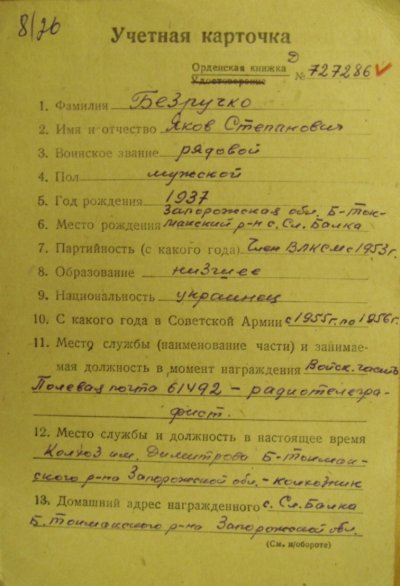 8/26
Учетная карточка
Д
Орденская книжка
Удостоверение № 727286
1. Фамилия Безручко
2. Имя и отчество Яков Степанович
3. Воинское звание рядовой
4. Пол мужской
5. Год рождения 1937
Запорожская обл. Б-Ток-
6. Место рождения макский р-н с. Сл. Балка
7. Партийность (с какого года) Член ВЛКСМ с 1953 г.
8. Образование низшее
9. Национальность украинец
10. С какого года в Советской Армии с 1955 г. по 1956 г.
11. Место службы (наименование части) и занимае-
мая должность в момент награждения Войск. часть
Полевая почта 61492 – радиотелегра-
фист.
12. Место службы и должность в настоящее время
Колхоз им. Димитрова Б-Токмак-
ского р-на Запорожской обл. - колхозник
13. Домашний адрес награжденного с. Сл. Балка
Б. Токмакского р-на Запорожской обл.
(См. н/обороте)